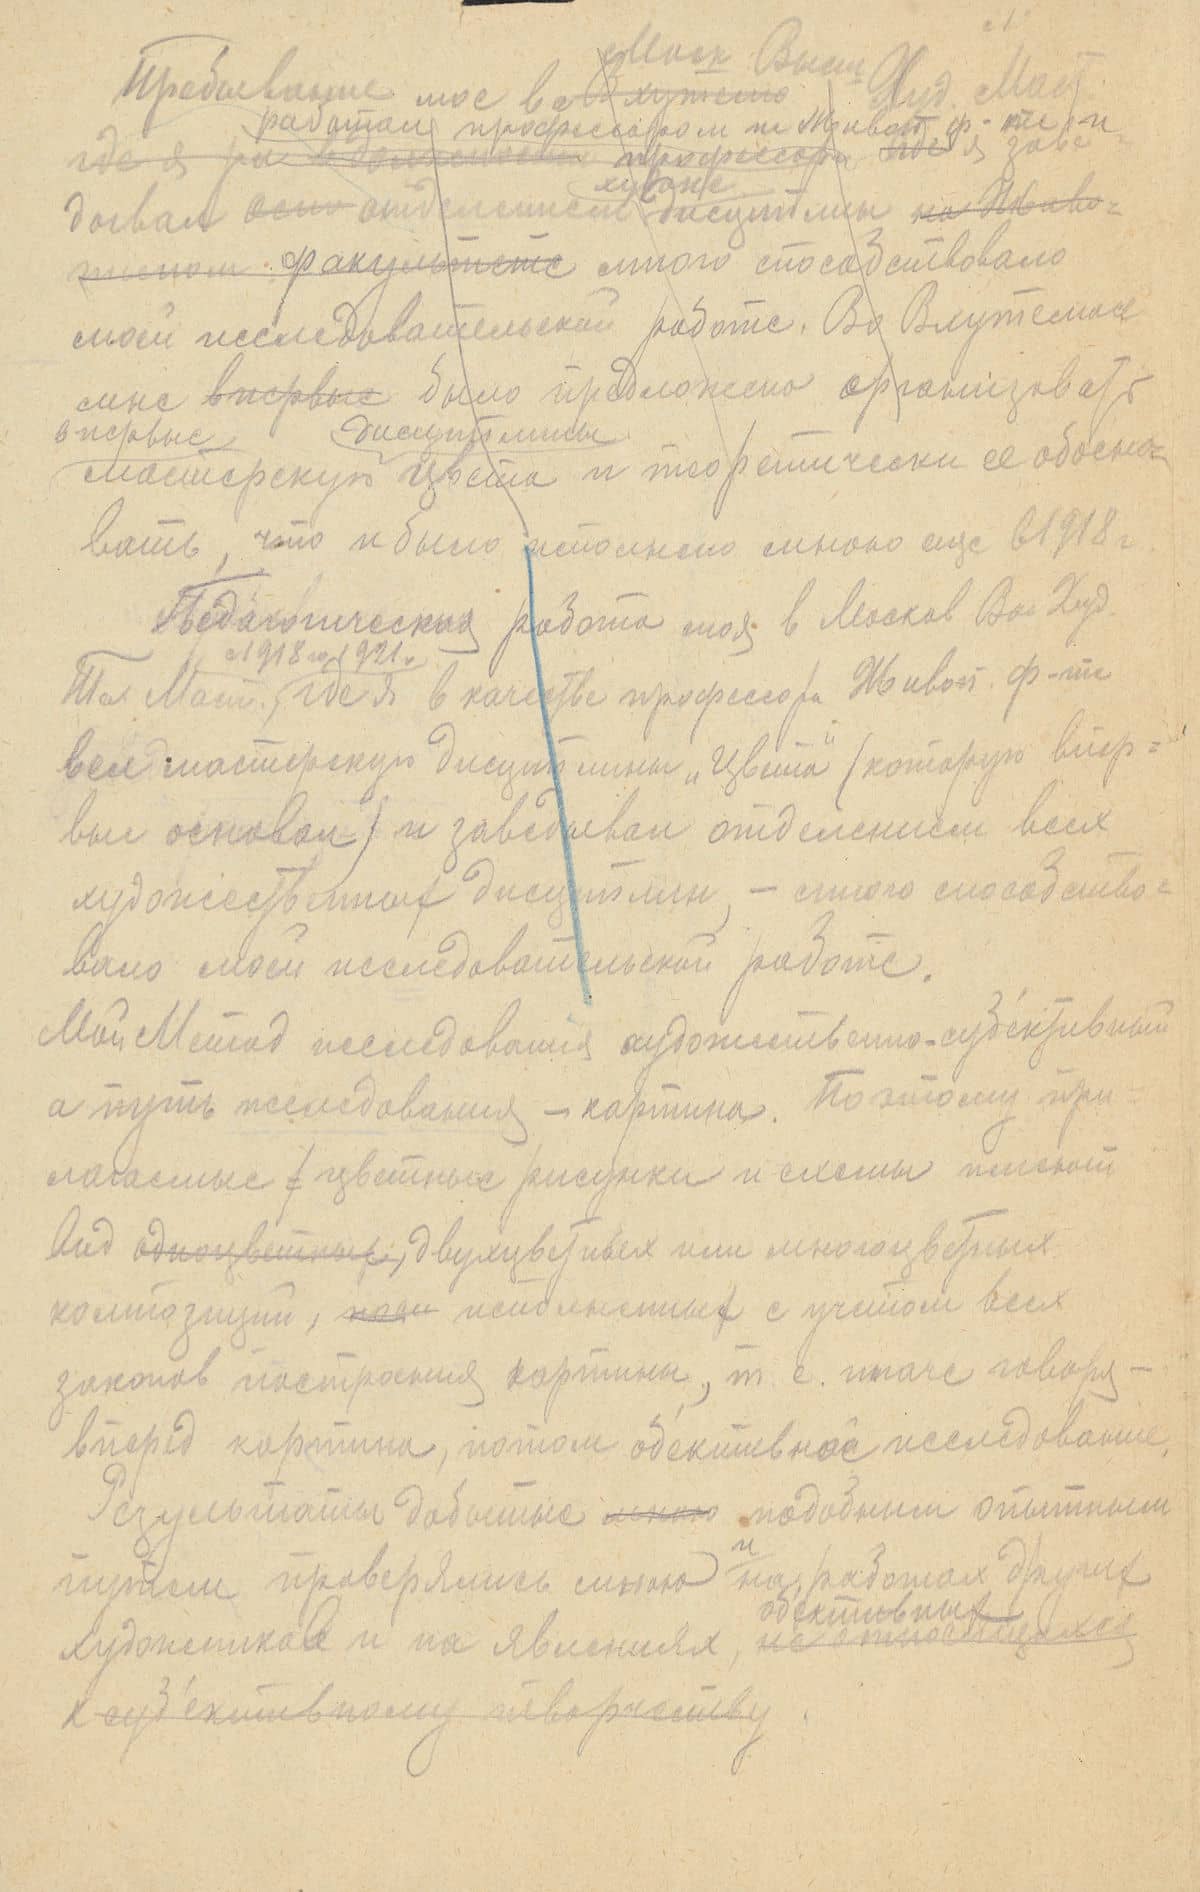 Моск Высш Худ. Маст.
Пребывание мое во Вхутемас
работал профессором на Живоп ф-те и
где я профессора где я заве-
художе
довал отделением дисциплин на Живо-
писном факультете много способствовало
моей исследовательской работе. Во Вхутемасе
мне впервые было предложено организовать
впервые дисциплины
мастерскую цвета и теоретически ее обосно-
вать, что и было исполнено мною еще в 1918 г.
Педагогическая работа моя в Москов Вы Худ.
с 1918 по 1921 г
Маст., где я в качестве профессора Живоп. ф-та
вел мастерскую дисциплины „Цвета" (которую впер-
вые основал) и заведывал отделением всех
художественных дисциплин, – много способство-
вало моей исследовательской работе.
Мой Метод исследования художественно-субъективный
а путь исследования – картина. Поэтому при-
лагаемые цветные рисунки и схемы имеют
вид одноцветных, двухцветных или многоцветных
композиций, исполненных с учетом всех
законов построения картины, т. е. иначе говоря –
вперед картина, потом объективное исследование.
Результаты добытые мною подобным опытным
и
путем проверялись мною на работах других
объективных
художников и на явлениях, не относящихся
к субъективному творчеству.